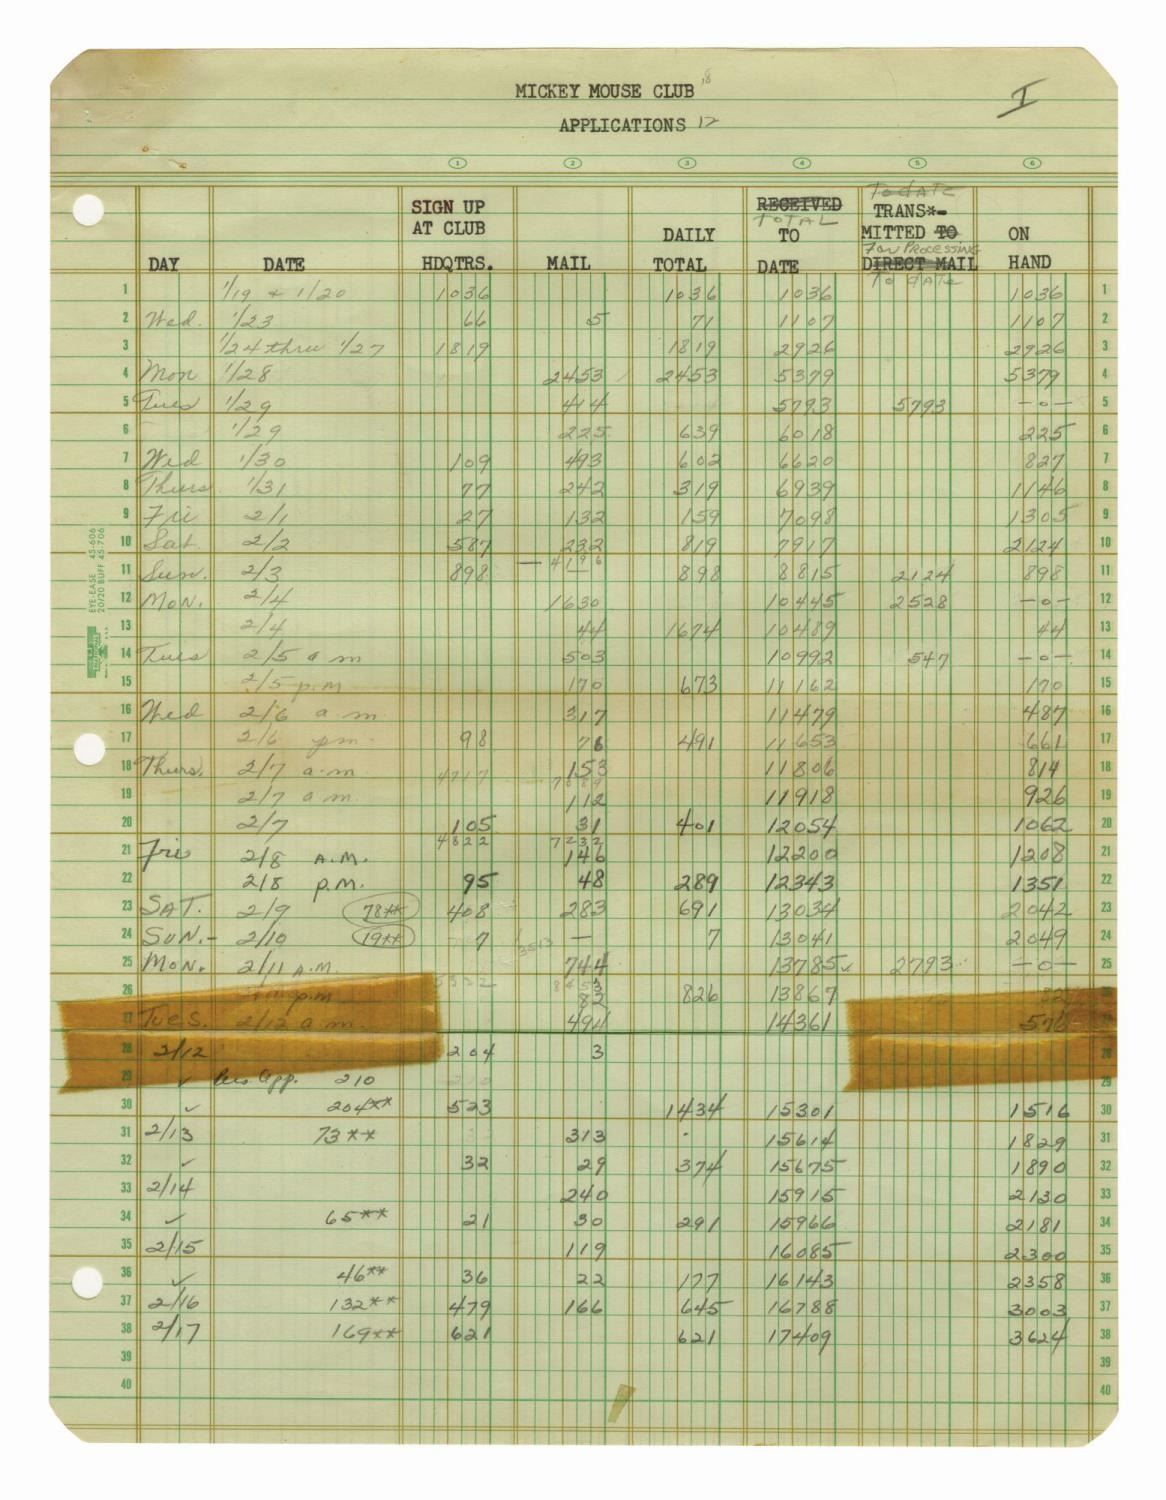 MICKEY MOUSE CLUB 18
APPLICATIONS 12
I
1 2 3 4 5 6
RECEIVED To date
SIGN UP TOTAL TRANS*-
AT CLUB DAILY TO MITTED TO ON
For Processing
DAY DATE HDQTRS. MAIL TOTAL DATE DIRECT MAIL HAND
To date
1 1/19 + 1/20 1036 1036 1036 1036 1
2 Wed. 1/23 66 5 71 1107 1107 2
3 1/24 thru 1/27 1819 1819 2926 2926 3
4 Mon 1/28 2453 2453 5379 5379 4
5 Tues 1/29 414 5793 5793 -0- 5
6 1/29 225 639 6018 225 6
7 Wed 1/30 109 493 602 6620 827 7
8 Thurs. 1/31 77 242 319 6939 1146 8
9 Fri 2/1 27 132 159 7098 1305 9
10 Sat. 2/2 587 232 819 7917 2124 10
4196
11 Sun. 2/3 898 — 898 8815 2124 898 11
12 MON. 2/4 1630 10445 2528 -0- 12
13 2/4 44 1674 10489 44 13
14 Tues 2/5 a m 503 10992 547 -0- 14
15 2/5 p.m 170 673 11162 170 15
16 Wed 2/6 a m 317 11479 487 16
17 2/6 pm. 98 76 491 11653 661 17
18 Thurs. 2/7 a.m. 4717 153 11806 814 18
7089
19 2/7 a m. 112 11918 926 19
20 2/7 105 31 401 12054 1062 20
4822 7232
21 Fri 2/8 A.M. 146 12200 1208 21
22 2/8 P.M. 95 48 289 12343 1351 22
23 SAT. 2/9 78** 408 283 691 13034 2042 23
24 SUN.- 2/10 19** 7 — 7 13041 2049 24
3513
25 MON. 2/11 A.M. 744 13785✓ 2793 -0- 25
5332
26 p.m 82 826 13867 82
Tues. 2/12 a m. 494 14361 576
28 2/12 204 3 28
29 ✓ Les App. 210 29
30 ✓ 204** 523 1434 15301 1516 30
31 2/13 73** 313 15614 1829 31
32 ✓ 32 29 374 15675 1890 32
33 2/14 240 15915 2130 33
34 ✓ 65** 21 30 291 15966 2181 34
35 2/15 119 16085 2300 35
36 ✓ 46** 36 22 177 16143 2358 36
37 2/16 132** 479 166 645 16788 3003 37
38 2/17 169** 621 621 17409 3624 38
39 39
40 40
EYE-EASE 45-606
20/20 BUFF 45-706